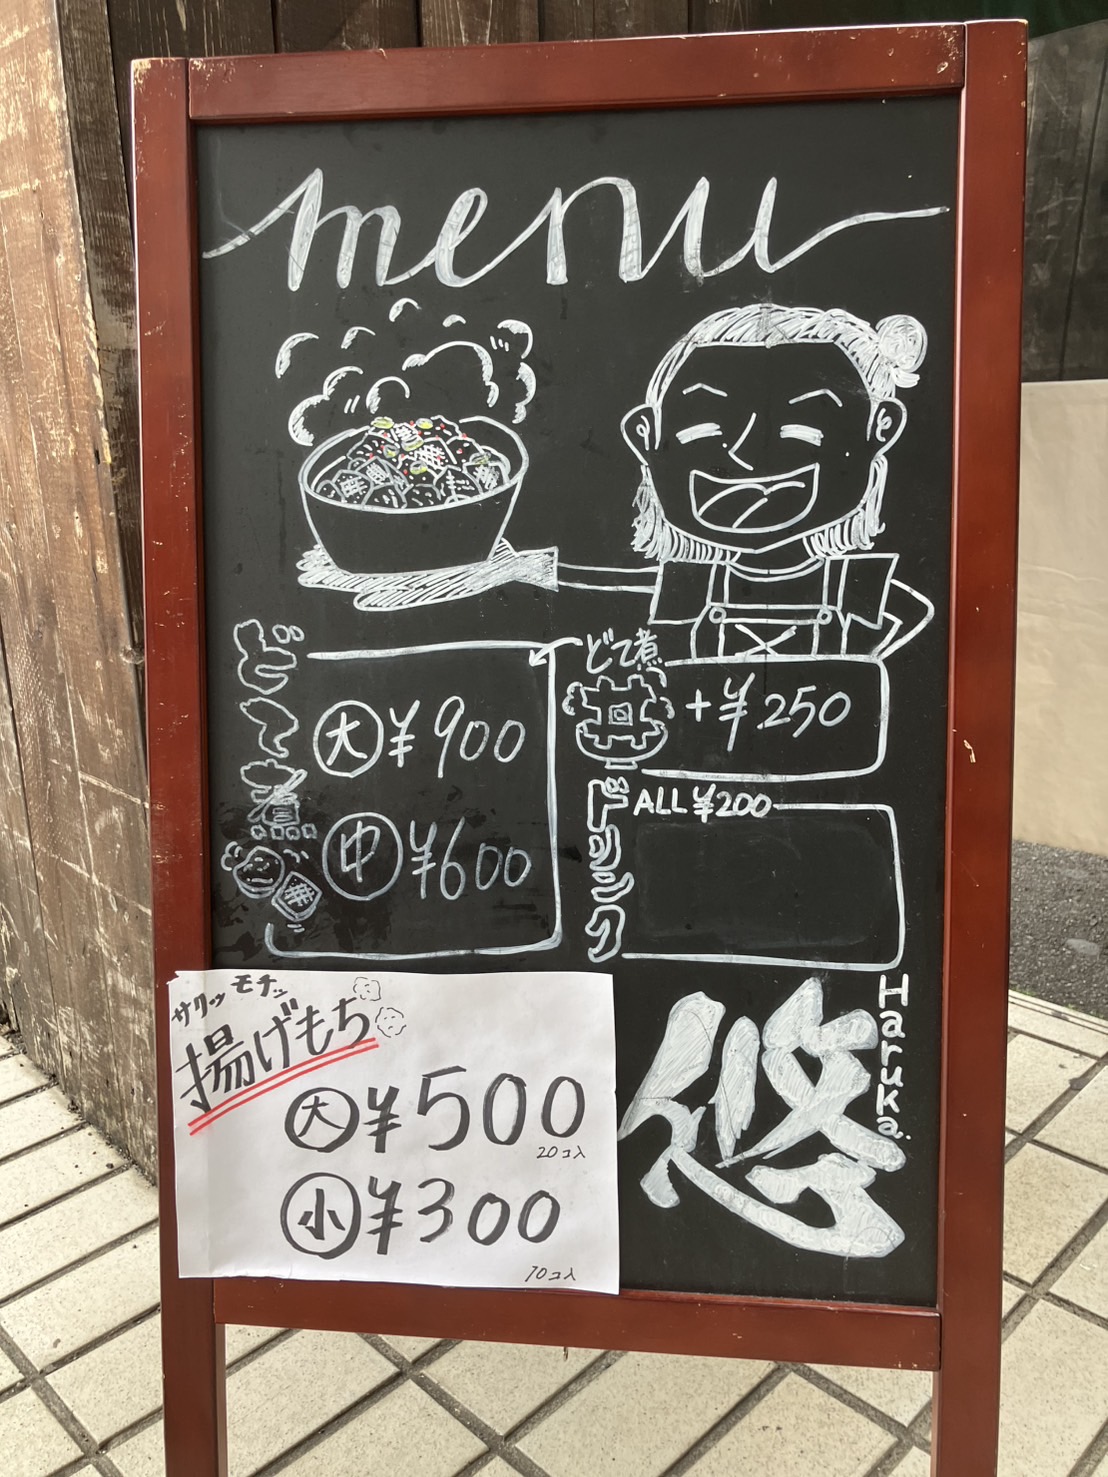 menu
どて煮
大 ¥900
中 ¥600
どて煮
丼 +¥250
ドリンク
ALL ¥200
サクッ モチッ
揚げもち
大 ¥500
20コ入
小 ¥300
10コ入
Haruka.
悠